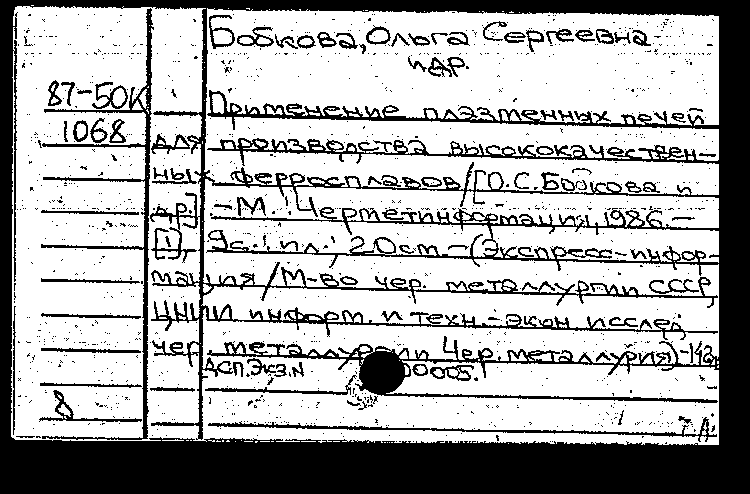 Бобкова, Ольга Сергеевна
и др.
87-50К
1068
Применение плазменных печей
для производства высококачествен-
ных ферросплавов/[О.С.Бобкова и
др.] - М.: Черметинформация, 1986.-
[1], 9с.: ил.; 20 см. - (Экспресс-инфор-
мация/М-во чер. металлургии СССР,
ЦНИИ информ. и техн.-экон. исслед.
чер. металлургии. Чер. металлургия)
ДСП. Экз. N 00005.
8